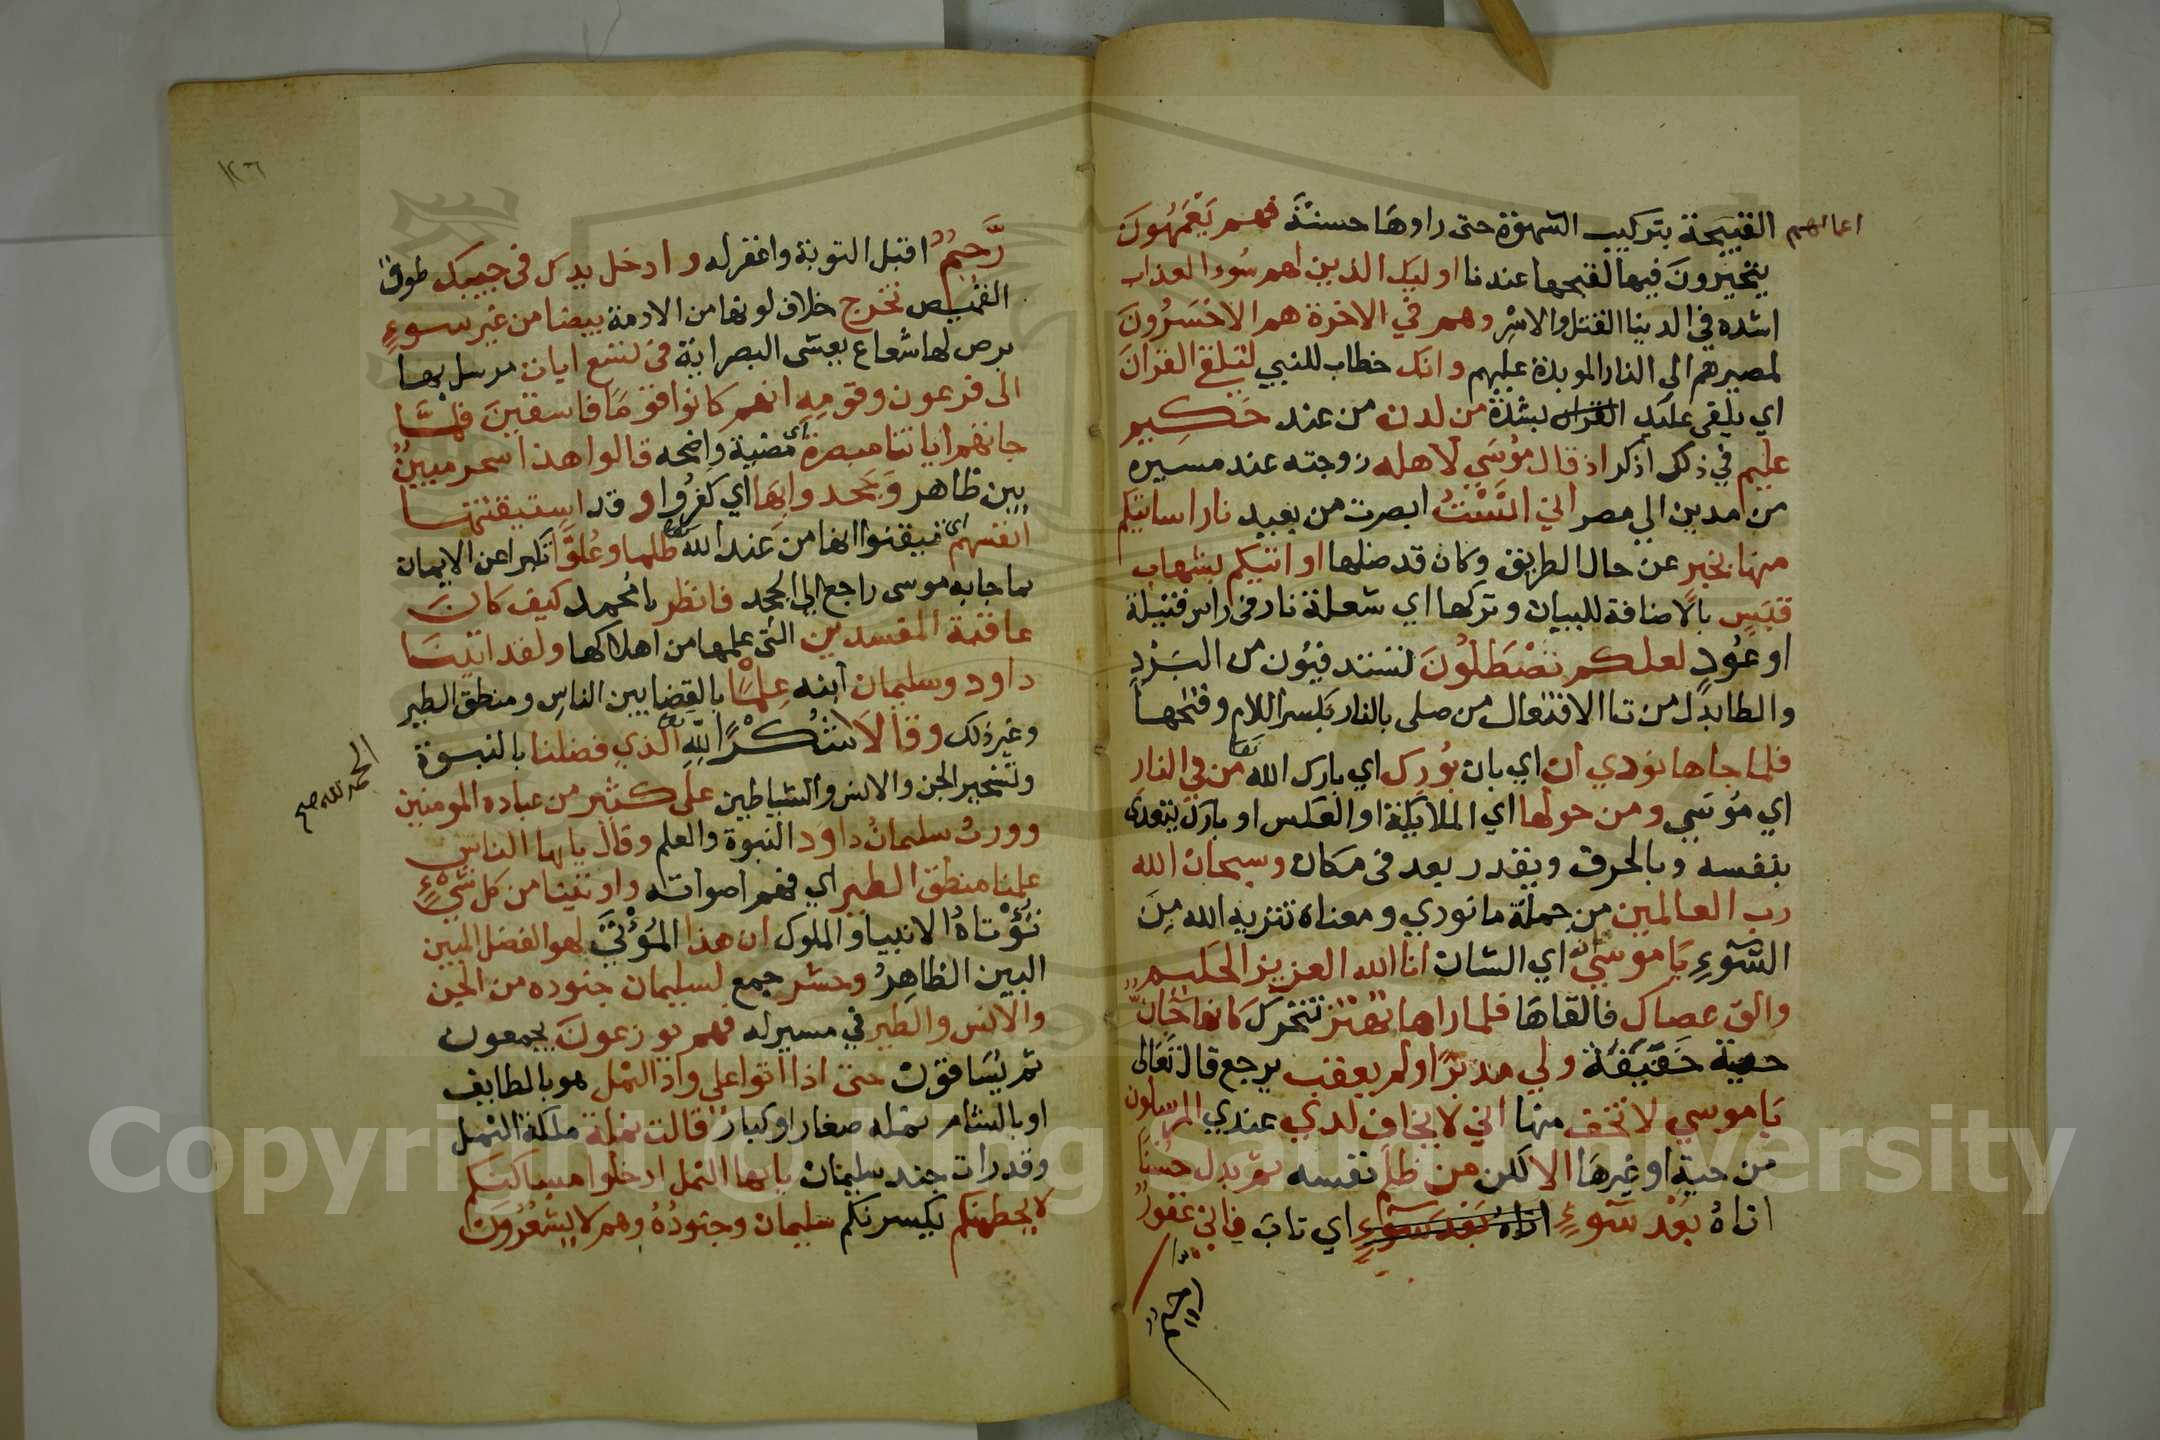 اعمالهم القبيحة بتركيب الشهوة حتى راوهَا حسنَة فهم يَعْمَهُونَ
يتحيرونَ فيها لقبحها عندنا اوليك الذين لهم سُوء العذاب
اشده في الدينا القتل والاسْرِ وهم في الاخرة هم الاخْسَرُونَ
لمصيرهم الى النار الموبدة عليهم وانك خطاب للنبي لتلقى القرانَ
اي يلقى عليك القران بشدّة من لدن من عند حَكِيم
عليم في ذلك اذكر اذ قال مُوسَي لاهله زوجته عند مسيره
من مدين الي مصر اني انَسْتُ ابصرت من بعيد نارا ساتيكم
منها بخبرٍ عن حال الطريق وكان قد ضلها او اتيكم بشهابِ
قبَسٍ بالاضافة للبيان وتركها اي شعلة نار في راس فتيلة
او عُودٍ لعلكم تصْطَلُونَ تستدفيُون من البَرْدِ
والطا بدل من تا الافتعال من صلى بالنار بكسر اللام وفتحها
فلما جاها نودي ان اي بان بُورك اي بارك الله تعا من في النار
اي مُوسَي ومن حولها اي الملايكة او العكس او بارك يتعدى
بنفسه وبالحرف ويقدر بعد في مكان وسبحان الله
رب العالمين من جملة ما نودي ومعناه تنزيه الله مِنَ
السّوءِ يَا موسَي انه اي الشان انا الله العزيز الحكيم
والق عصاك فالقاهَا فلما راها تهْتز تتحرك كانها جَانٌّ
حية خَفيفة ولي مدبرًا ولم يعقب يرجع قال تَعَالى
يَا موسي لا تخف منها اني لا يخاف لدي عندي المرسلون
من حيةٍ او غيرهَا الا لكن من ظلمَ نفسه ثم بدل حسنًا
اتاهُ بَعْد سوءٍ اتاه بَعْد سوءٍ اي تابَ فاني غفورٌ
رحيم
١٢٦
رَّحيمٌ اقبل التوبة واغفر له وادخل يدك في جيبك طوق
القميص تخرج خلاف لونها من الادمة بيضا من غير سوءٍ
برص لها شعاع يعشى البصر اية في تسع ايات مرسل بها
الى فرعون وقومِهِ انهم كانوا قومًا فاسقينَ فلمَّا
جاتهم اياتنا مبصرةً اي مضيية واضحه قالوا هذا سحر مبينٌ
بين ظاهر وَجَحدوا بهَا اي كفرُوا و قد استيقنتها
انفسهم اي تيقنوا انها من عند الله تعا ظلما وعُلوًّا تكبرا عن الايمان
بما جا به موسى راجع الي الجحد فانظر يا مُحمد كيف كانَ
عاقبة المفسدين التي علمها من اهلاكها ولقد اتينَا
داود وسليمان ابنه عِلْمًا بالقضا بين الناس ومنطق الطير
وغير ذلك وقالا شُكْرًا للهِ تعا الذي فضلنا بالنبوة
الحمد لله صح
وتسخير الجن والانس والشياطين على كثير من عباده المومنين
وورث سليمانُ داودَ النبوة والعلم وقال يايها الناس
علمنا منطق الطير اي فهم اصواته واوتينا من كل شيءٍ
تؤْتاهُ الانبيا والملوك ان هذا المُؤْتَى لهو الفضل المبين
البين الظاهرُ وحشر جمع لسليمان جنوده من الجن
والانس والطير في مسيرله فهم يوزعونَ يجمعون
ثم يُسَاقون حتى اذا اتوا على واد النمل هو بالطايف
او بالشام نمله صغار او كبارٌ قالت نملة ملكة النمل
وقد رات جند سليمان يايها النمل ادخلوا مساكنكم
لا يحطمنكم يكسرنكم سليمان وجنودُهُ وهم لا يشعُرُونَ
Copyright © King Saud University